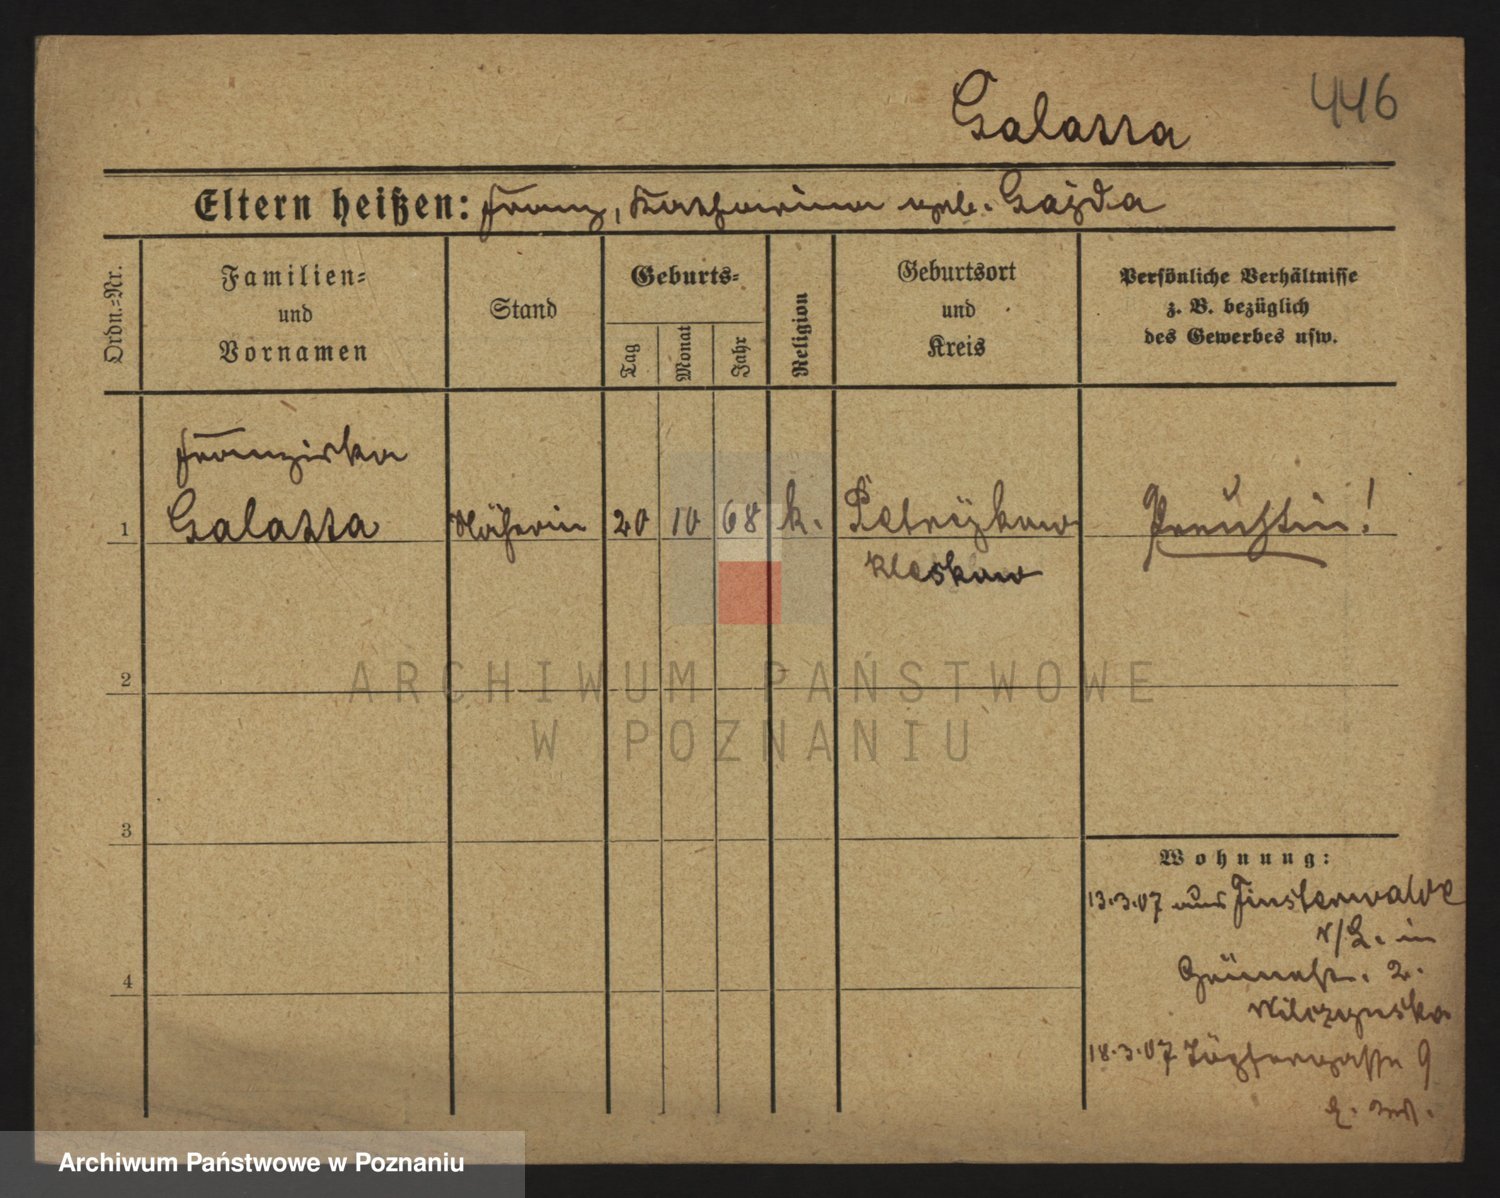 Galassa
446
Eltern heißen: Franz, Katharina geb. Gajda
Ordn.=Nr.
Familien=
und
Vornamen
Stand
Geburts=
Tag
Monat
Jahr
Religion
Geburtsort
und
Kreis
Persönliche Verhältnisse
z. B. bezüglich
des Gewerbes usw.
Franziska
1
Galassa
Näherin
20
10
68
k.
Petrzykow
Pleskow
Preußin!
2
3
4
ARCHIWUM PAŃSTWOWE
W POZNANIU
Wohnung:
13.3.07 aus Finsterwalde
N/L. in
Grünestr. 2.
Wilczynska
18.3.07 Töpfergasse 9
Archiwum Państwowe w Poznaniu